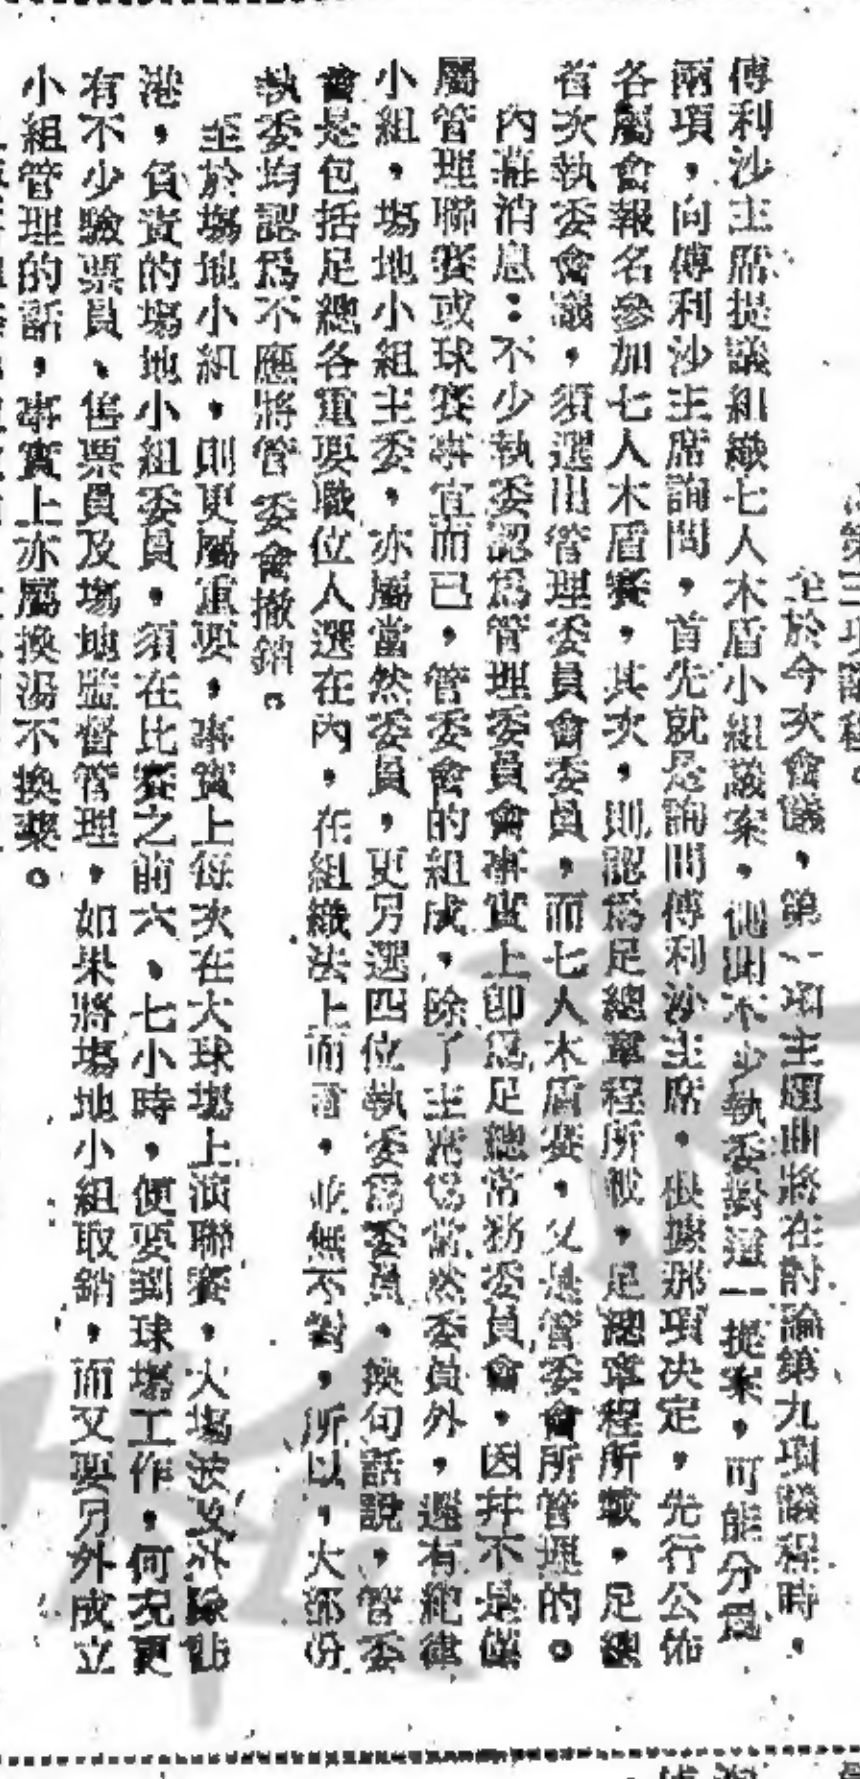 第三項議程。
至於今次會議，第一項主題曲將在討論第九項議程時，
傅利沙主席提議組織七人木盾小組議案，側聞不少執委對這一提案，可能分爲
兩項，向傅利沙主席詢問，首先就是詢問傅利沙主席，根據那項决定，先行公佈
各屬會報名參加七人木盾賽，其次，則認爲足總章程所載，足總章程所載，足總
首次執委會議，須選出管理委員會委員，而七人木盾賽，又是管委會所管理的。
內幕消息：不少執委認爲管理委員會事實上卽爲足總常務委員會，因幷不是僅
屬管理聯賽或球賽事宜而已，管委會的組成，除了主席爲當然委員外，還有紀律
小組，塲地小組主委，亦屬當然委員，更另選四位執委爲委員，換句話說，管委
會是包括足總各重要職位人選在內，在組織法上而言，並無不對，所以，大部份
執委均認爲不應將管委會撤銷。
至於塲地小組，則更屬重要，事實上每次在大球塲上演聯賽，大塲波及外隊訪
港，負責的塲地小組委員，須在比賽之前六、七小時，便要到球塲工作，何况更
有不少驗票員、售票員及塲地監督管理，如果將塲地小組取銷，而又要另外成立
小組管理的話，事實上亦屬換湯不換藥。